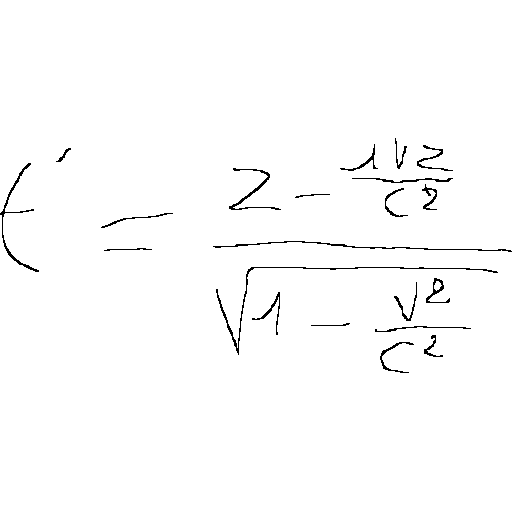 t' = \frac{2 - \frac{1vz}{c^2}}{\sqrt{1 - \frac{v^2}{c^2}}}